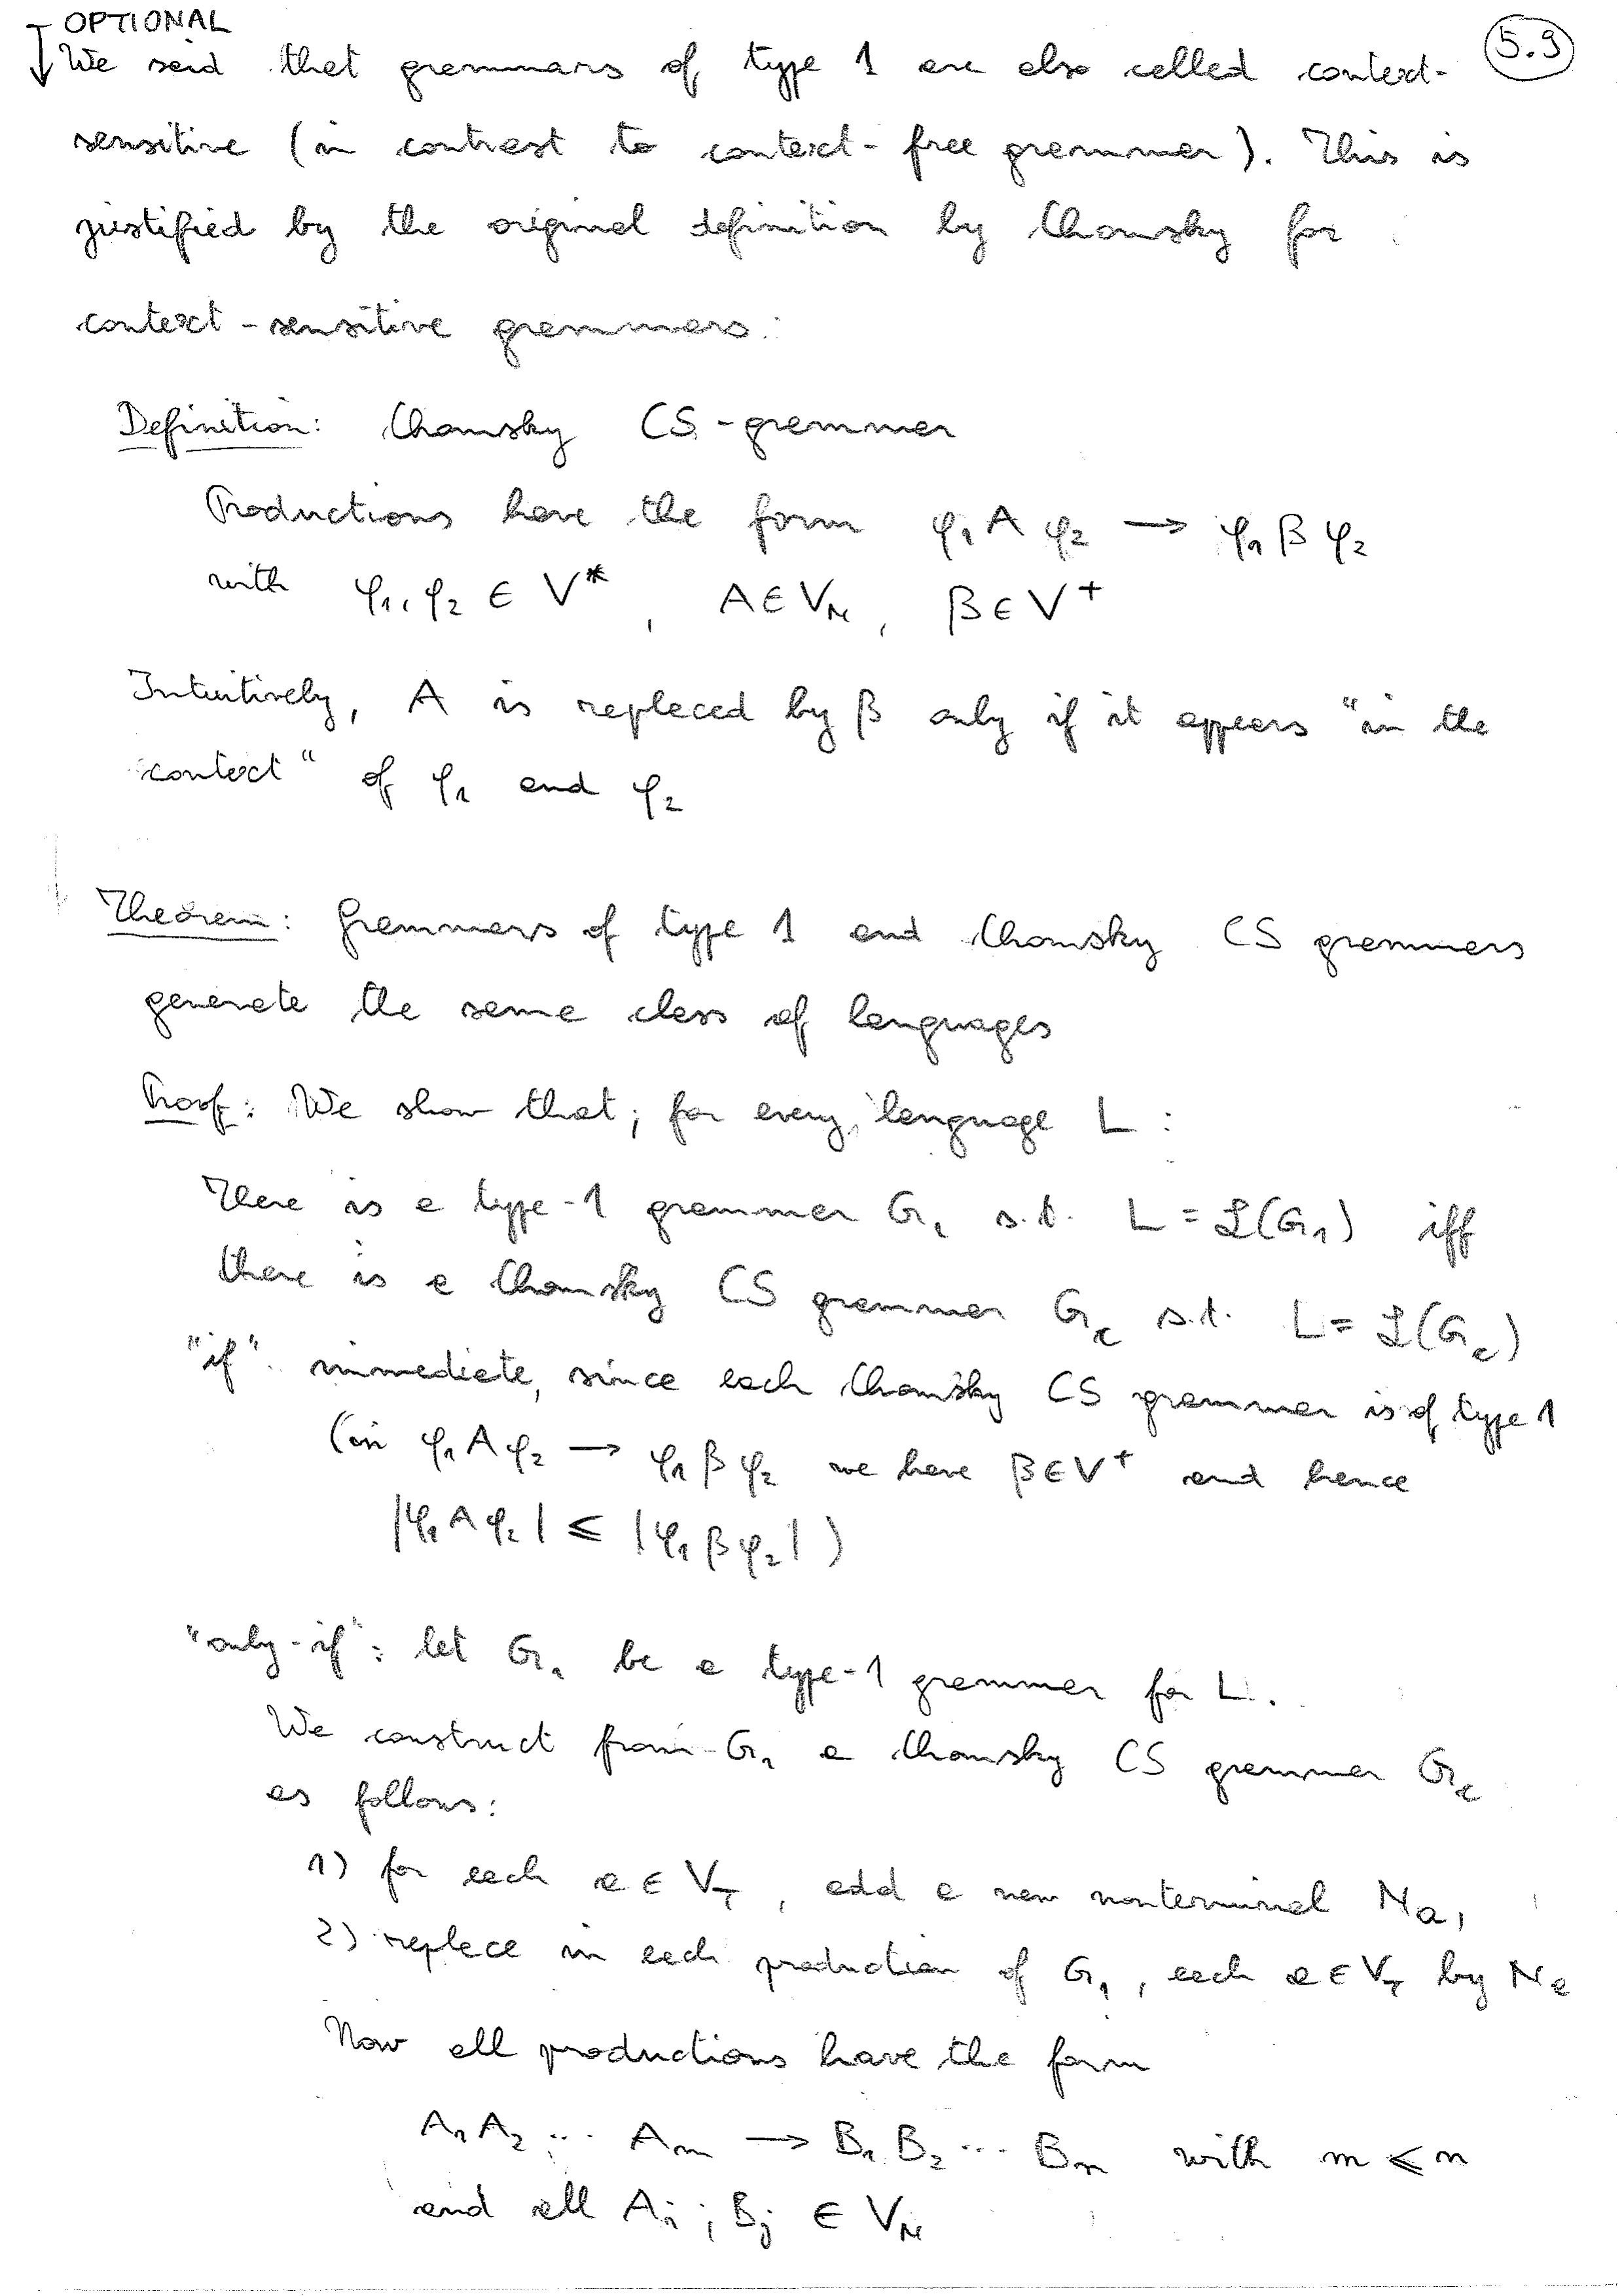 OPTIONAL
We said that grammars of type 1 are also called context- 5.9
sensitive (in contrast to context-free grammar). This is
justified by the original definition by Chomsky for
context-sensitive grammars:
Definition: Chomsky CS-grammar
Productions have the form φ₁ A φ₂ → φ₁ β φ₂
with φ₁, φ₂ ∈ V*, A ∈ V_N, β ∈ V⁺
Intuitively, A is replaced by β only if it appears "in the
context" of φ₁ and φ₂
Theorem: Grammars of type 1 and Chomsky CS grammars
generate the same class of languages
Proof: We show that, for every language L:
There is a type-1 grammar G₁ s.t. L = ℒ(G₁) iff
there is a Chomsky CS grammar G_c s.t. L = ℒ(G_c)
"if": immediate, since each Chomsky CS grammar is of type 1
(in φ₁ A φ₂ → φ₁ β φ₂ we have β ∈ V⁺ and hence
|φ₁ A φ₂| ≤ |φ₁ β φ₂|)
"only-if": let G₁ be a type-1 grammar for L.
We construct from G₁ a Chomsky CS grammar G_c
as follows:
1) for each a ∈ V_T, add a new nonterminal N_a,
2) replace in each production of G₁, each a ∈ V_T by N_a
Now all productions have the form
A₁ A₂ ... A_m → B₁ B₂ ... B_n with m ≤ n
and all A_i, B_j ∈ V_N